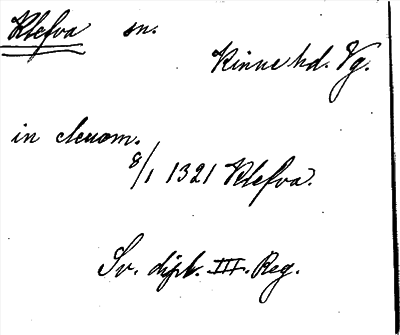 Klefva sn.
Kinne hd. Vg.
in clenom.
8/1 1321 Klefva.
Sv. dipl. III. Reg.